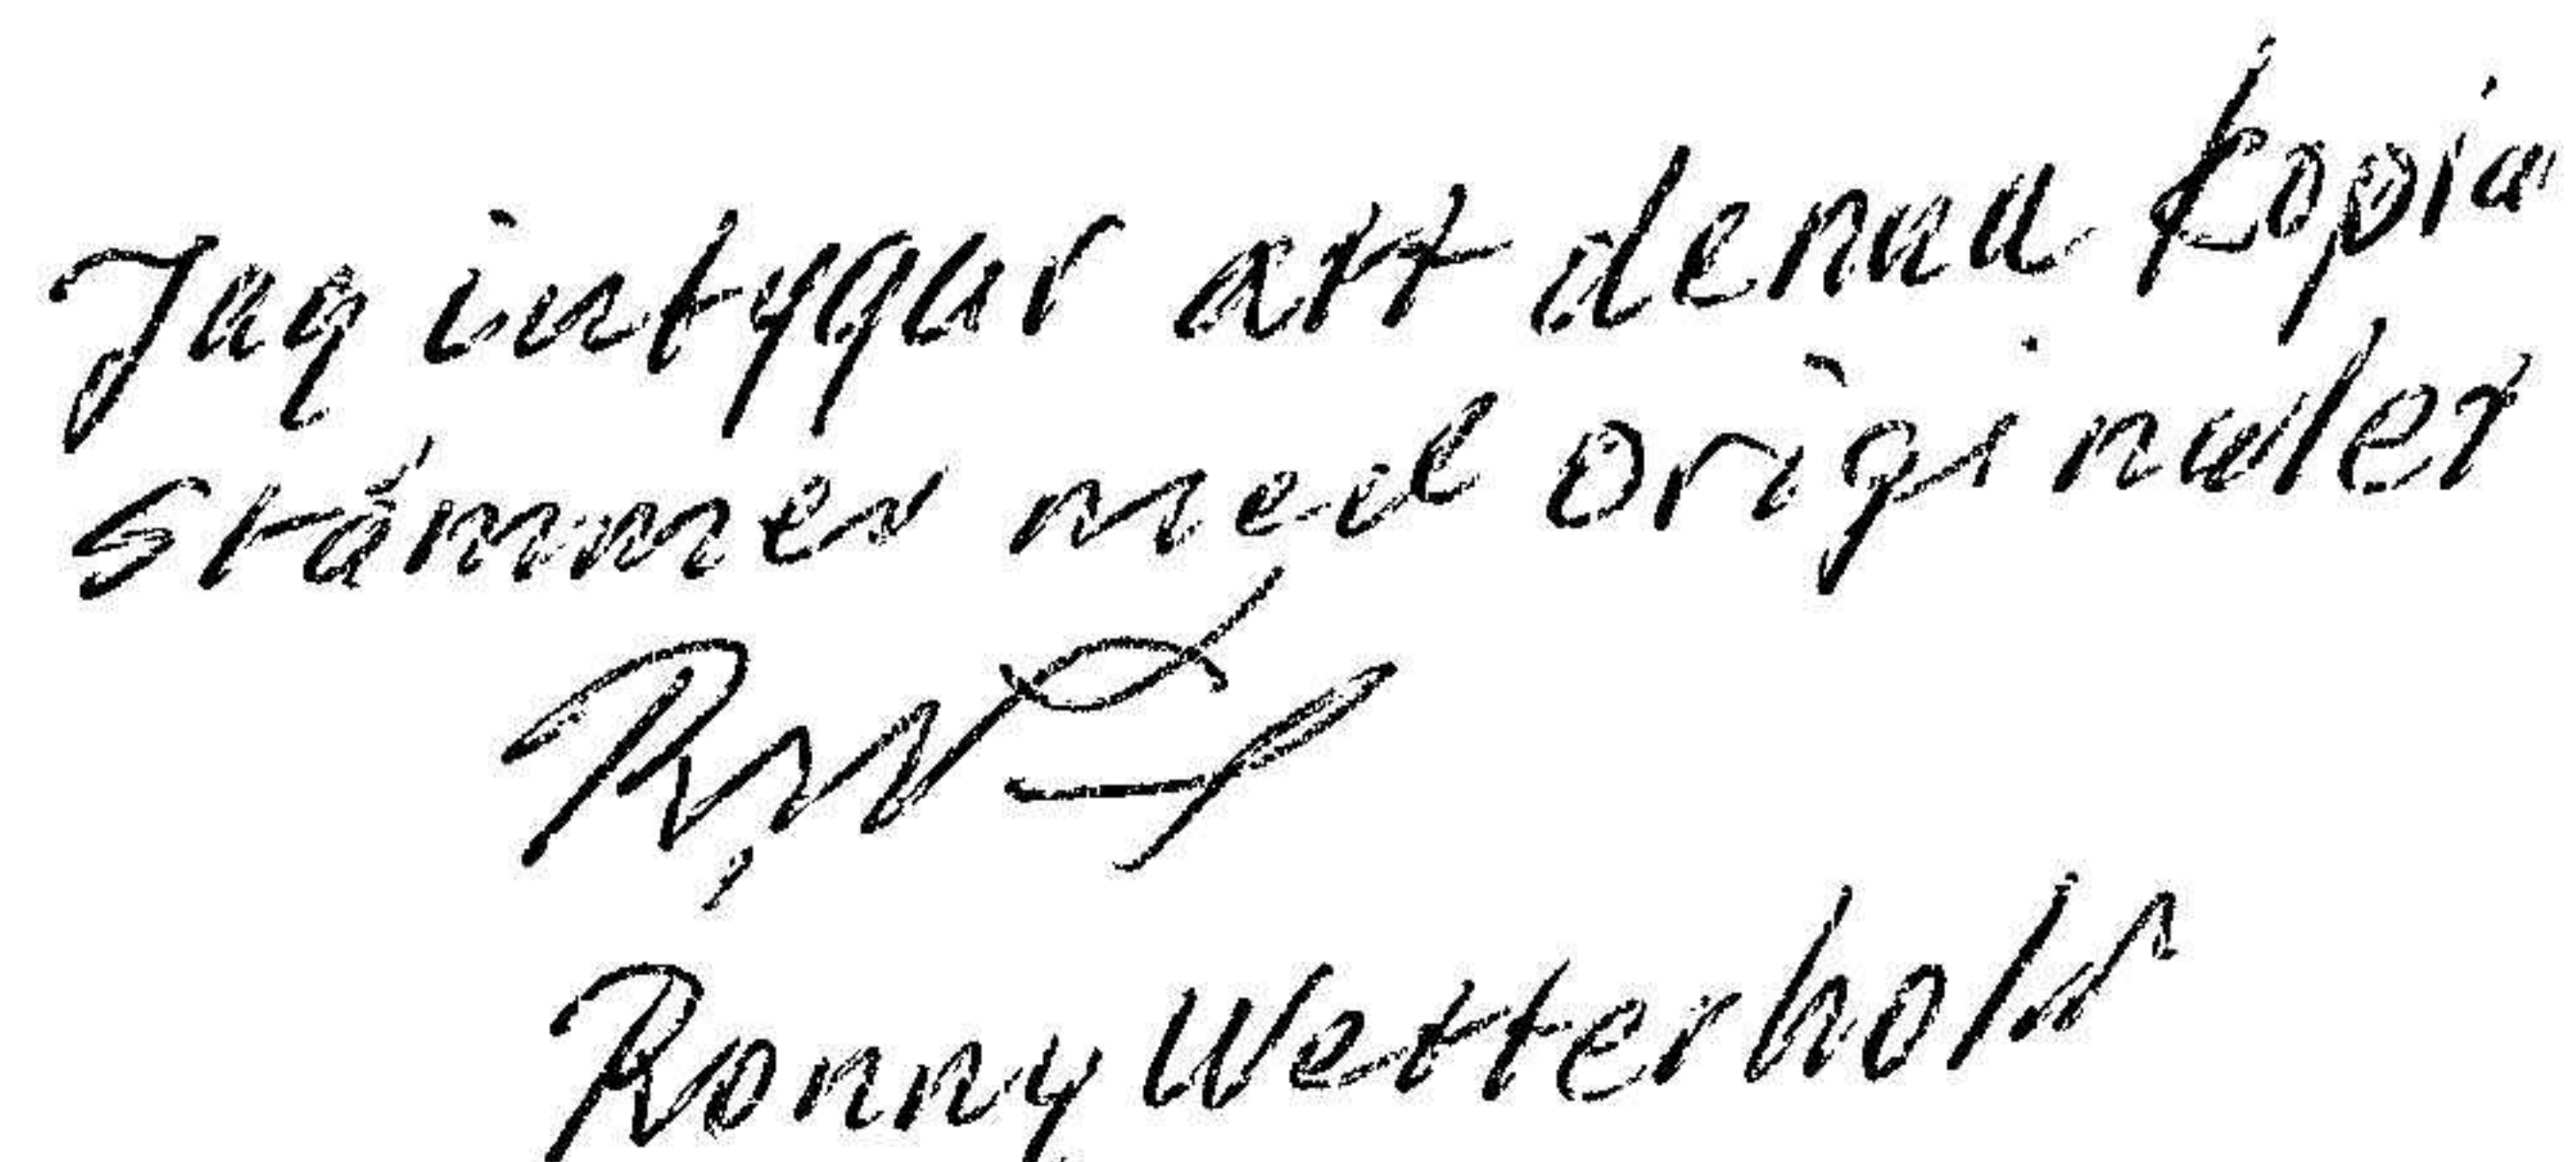 Jag intygar att denna kopia
stämmer med originalet
Ronny Wetterhold